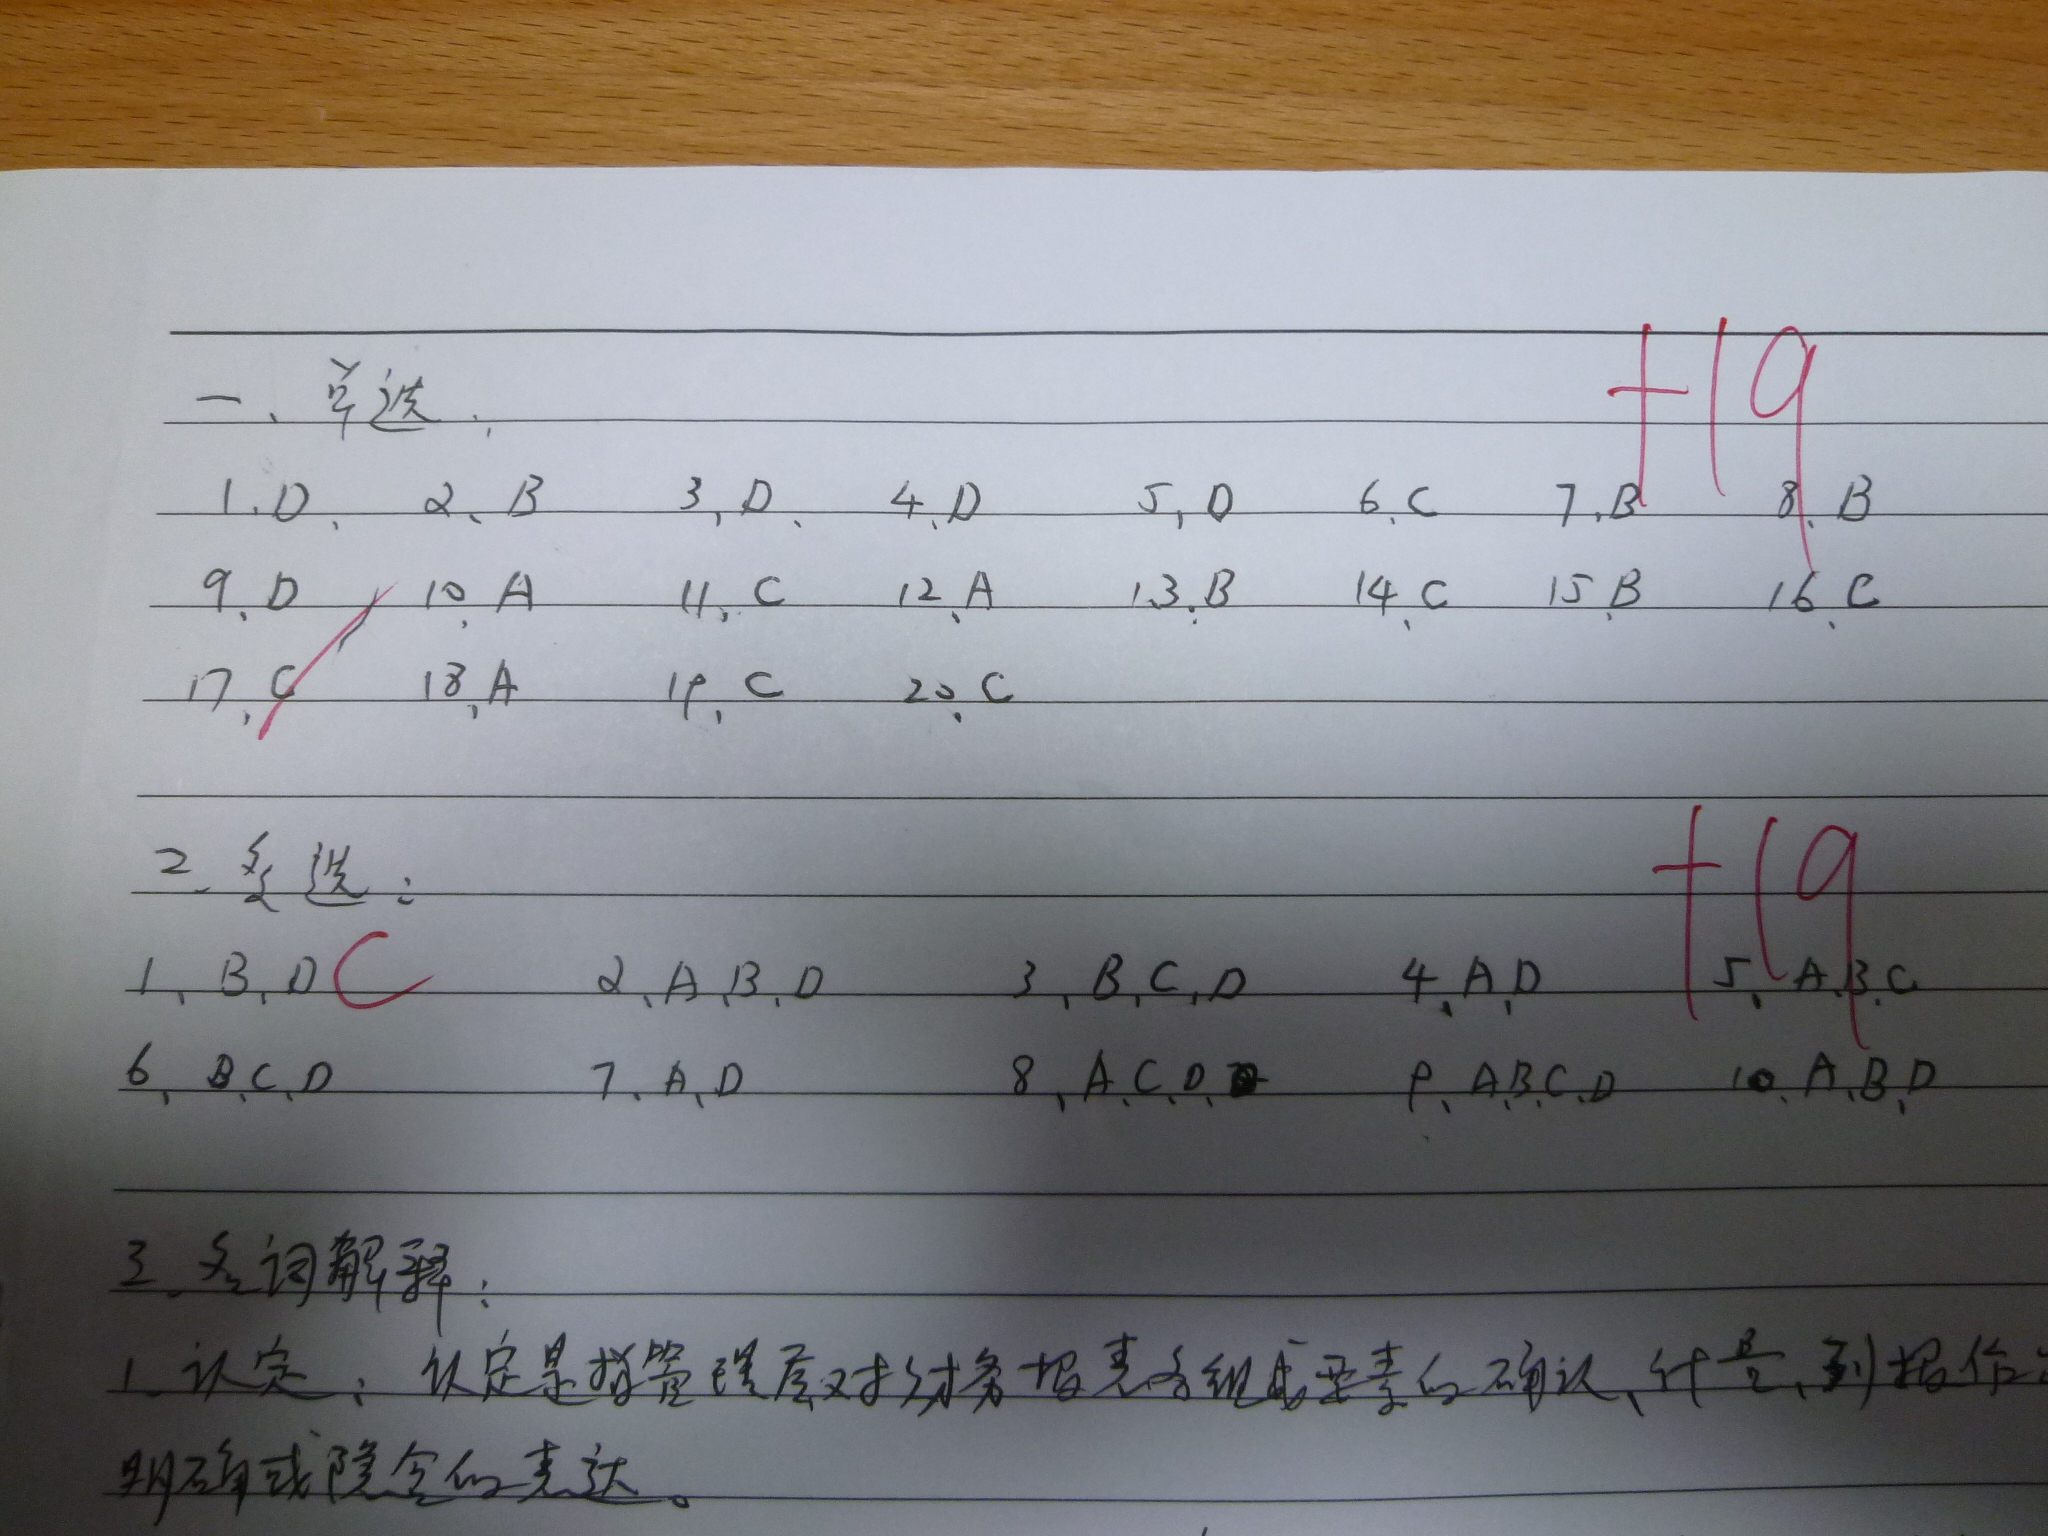 一、单选：
+19
1、D、 2、B 3、D、 4、D 5、D 6、C 7、B 8、B
9、D 10、A 11、C 12、A 13、B 14、C 15、B 16、C
17、C 18、A 19、C 20、C
2、多选：
+19
1、B、D C 2、A、B、D 3、B、C、D 4、A、D 5、A、B、C
6、B、C、D 7、A、D 8、A、C、D、 9、A、B、C、D 10、A、B、D
3、名词解释：
1、认定：认定是指管理层对财务报表各组成要素的确认、计量、列报作出
明确或隐含的表达。